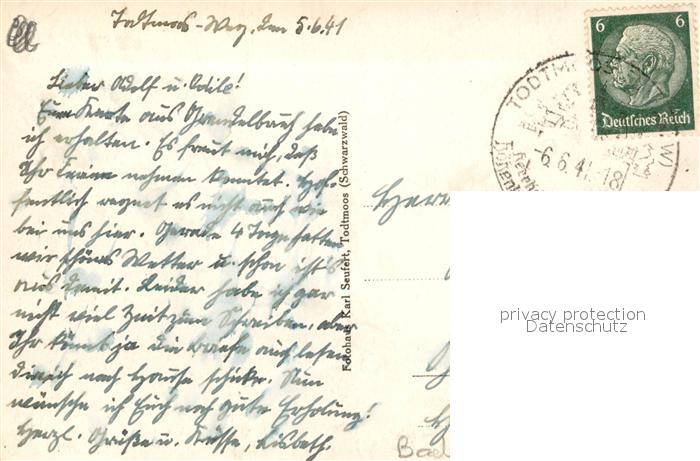 Todtmoos-Weg, den 5.6.41
Lieber Adolf u. Odile!
Eure Karte aus Grendelbruch habe
ich erhalten. Es freut mich, daß
Ihr Ferien nehmen konntet. Hof-
fentlich regnet es nicht auch wie
bei uns hier. Gerade 4 Tage hatten
wir schönes Wetter u. schon ist's
aus damit. Leider habe ich gar
nicht viel Zeit zum Schreiben, aber
Ihr könnt ja die Briefe auch lesen
die ich nach Hause schicke. Nun
wünsche ich Euch noch gute Erholung!
Herzl. Grüße u. Küsse, Lisbeth.
Fotohaus Karl Seufert, Todtmoos (Schwarzwald)
6 6
Deutsches Reich
TODTMOOS
-6.6.41.-18
Höhen
Herrn
privacy protection
Datenschutz
Bad